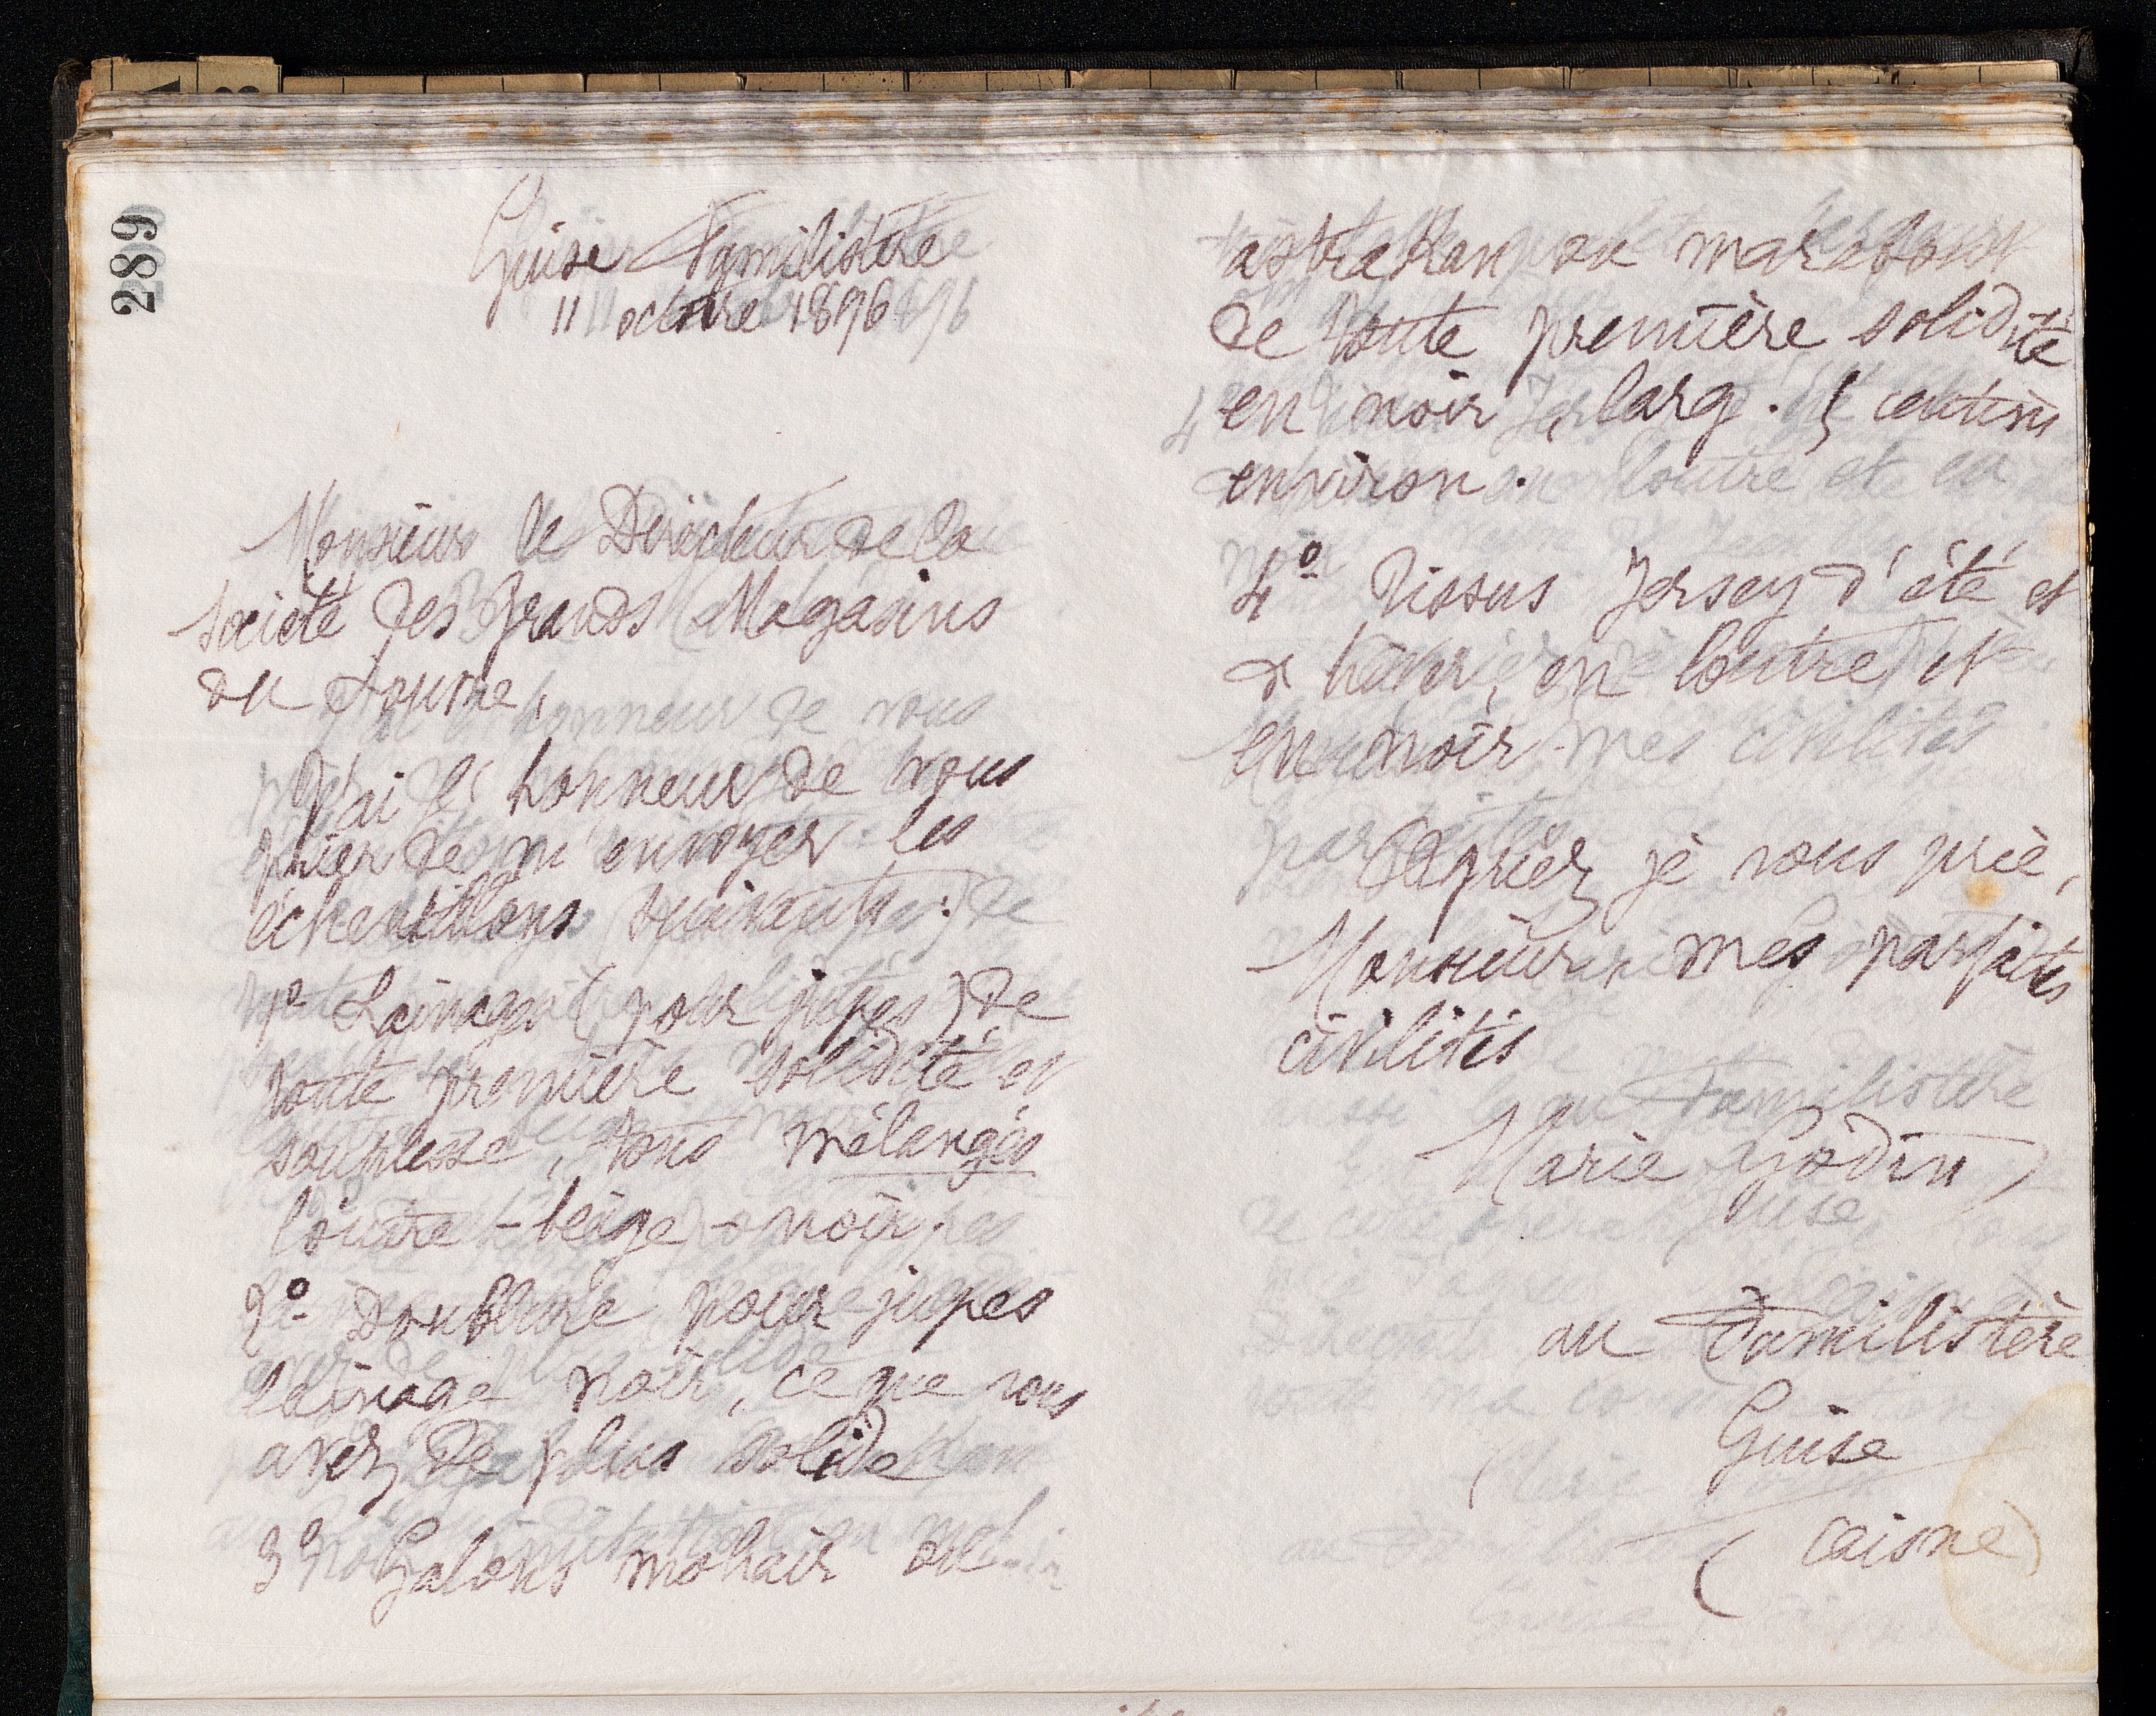 289
Guise Familistère
11 octobre 1896
Monsieur le Directeur de la
Société des Grands Magasins
du Louvre,
J'ai l'honneur de vous
prier de m'envoyer les
échantillons suivants :
1º Lainages (pour jupes) de
toute première solidité et
souplesse, tons mélangés
loutre - beige - noir.
2º Doublure pour jupes
lainage noir, ce que vous
avez de plus solide
3º Galons mohair ou
astrakan ou marabout
de toute première solidité
en noir, larg. 5 centim
environ.
4º Tissus Jersey d'été et
d'hiver, en loutre et
en noir.
Agréez, je vous prie,
Monsieur mes parfaites
civilités
Marie Godin
au Familistère
Guise
(Aisne)